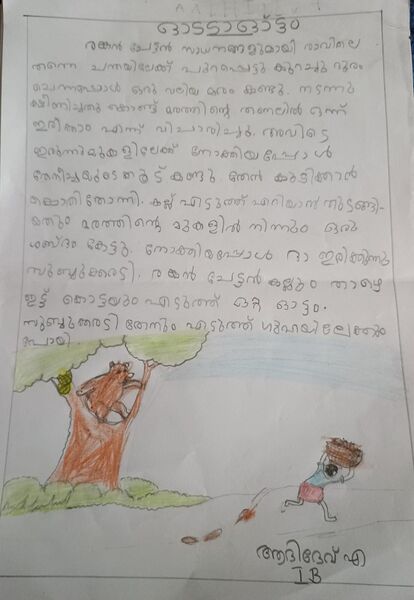 ഓട്ടാഓട്ടം
രങ്കൻ ചേട്ടൻ സാധനങ്ങളുമായി രാവിലെ
തന്നെ ചന്തയിലേക്ക് പുറപ്പെട്ടു കുറച്ചു ദൂരം
ചെന്നപ്പോൾ ഒരു വലിയ മരം കണ്ടു. നടന്നു
ക്ഷീണിച്ചതു കൊണ്ട് മരത്തിന്റെ തണലിൽ ഒന്ന്
ഇരിക്കാം എന്ന് വിചാരിച്ചു. അവിടെ
ഇരുന്നുമുകളിലേക്ക് നോക്കിയപ്പോൾ
തേനീച്ചയുടെ കൂട് കണ്ടു. തേൻ കുടിക്കാൻ
കൊതി തോന്നി. കല്ല് എടുത്ത് എറിയാൻ തുടങ്ങി-
യതും മരത്തിന്റെ മുകളിൽ നിന്നും ഒരു
ശബ്ദം കേട്ടു. നോക്കിയപ്പോൾ ദാ ഇരിക്കുന്നു
സുബ്ബുക്കരടി. രങ്കൻ ചേട്ടൻ കല്ലും താഴെ
ഇട്ട് കൊട്ടയും എടുത്ത് ഒറ്റ ഓട്ടം.
സുബ്ബുക്കരടി തേനും എടുത്ത് ഗുഹയിലേക്കും
പോയി
ആദിദേവ് എ
I B